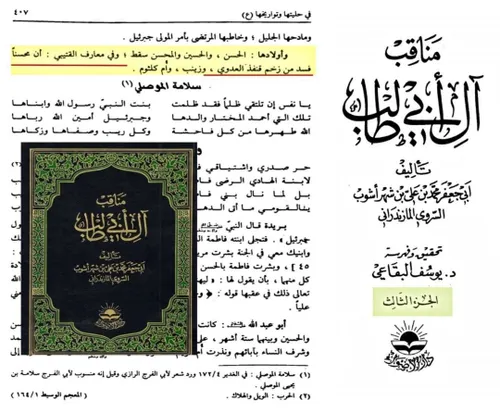 في حليتها وتواريخها (ع)
٤٠٧
ومادحها الجليل؛ وخاطبها المرتضى بأمر المولى جبرئيل.
وأولادها: الحسن، والحسين والمحسن سقط؛ وفي معارف القتيبي: أن محسناً
فسد من زخم قنفذ العدوي، وزينب، وأم كلثوم.
سلامة الموصلي (١)
يا نفس إن تلتقي ظلماً فقد ظلمت
بنت النبي رسول الله وابناها
تلك التي أحمد المختار والدها
وجبرئيل أمين الله رباها
الله طهرها من كل فاحشة
وكل ريب وصفاها وزكاها
حر صدري واشتياقي
لابنة الهادي الرضى
بل لما نال بني
يالقومي ما أتى الد
بريدة قال النبي
جبرئيل؛ فتجلى ابنته فاطمة
وابنيك معي في الجنة
٤٥] وبشرت فاطمة بالحسن
منهما، بأن يقول لها:
تعالى ذلك في عقبها قوله:
علياً.
أبو عبد الله: كانت
والحسين وبينهما ستة أشهر،
وشرف النساء بآبائهم ونذرت
(١) سلامة الموصلي: في الغدير ١٧٢/٤ ورد شعر لأبي الفرج الرازي وقيل إنه منسوب لأبي الفرج سلامة بن
يحيى الموصلي.
(٢) الحرب: الويل والهلاك.
(المعجم الوسيط ١٦٤/١)
مناقب
آل أبي طالب
تأليف
أبي جعفر محمد بن علي بن شهر آشوب
السروي المازندراني
مناقب
آل أبي طالب
تأليف
أبي جعفر محمد بن علي بن شهر آشوب
السروي المازندراني
تحقيق وفهرسة
د. يوسف البقاعي
الجزء الثالث
دار الأضواء